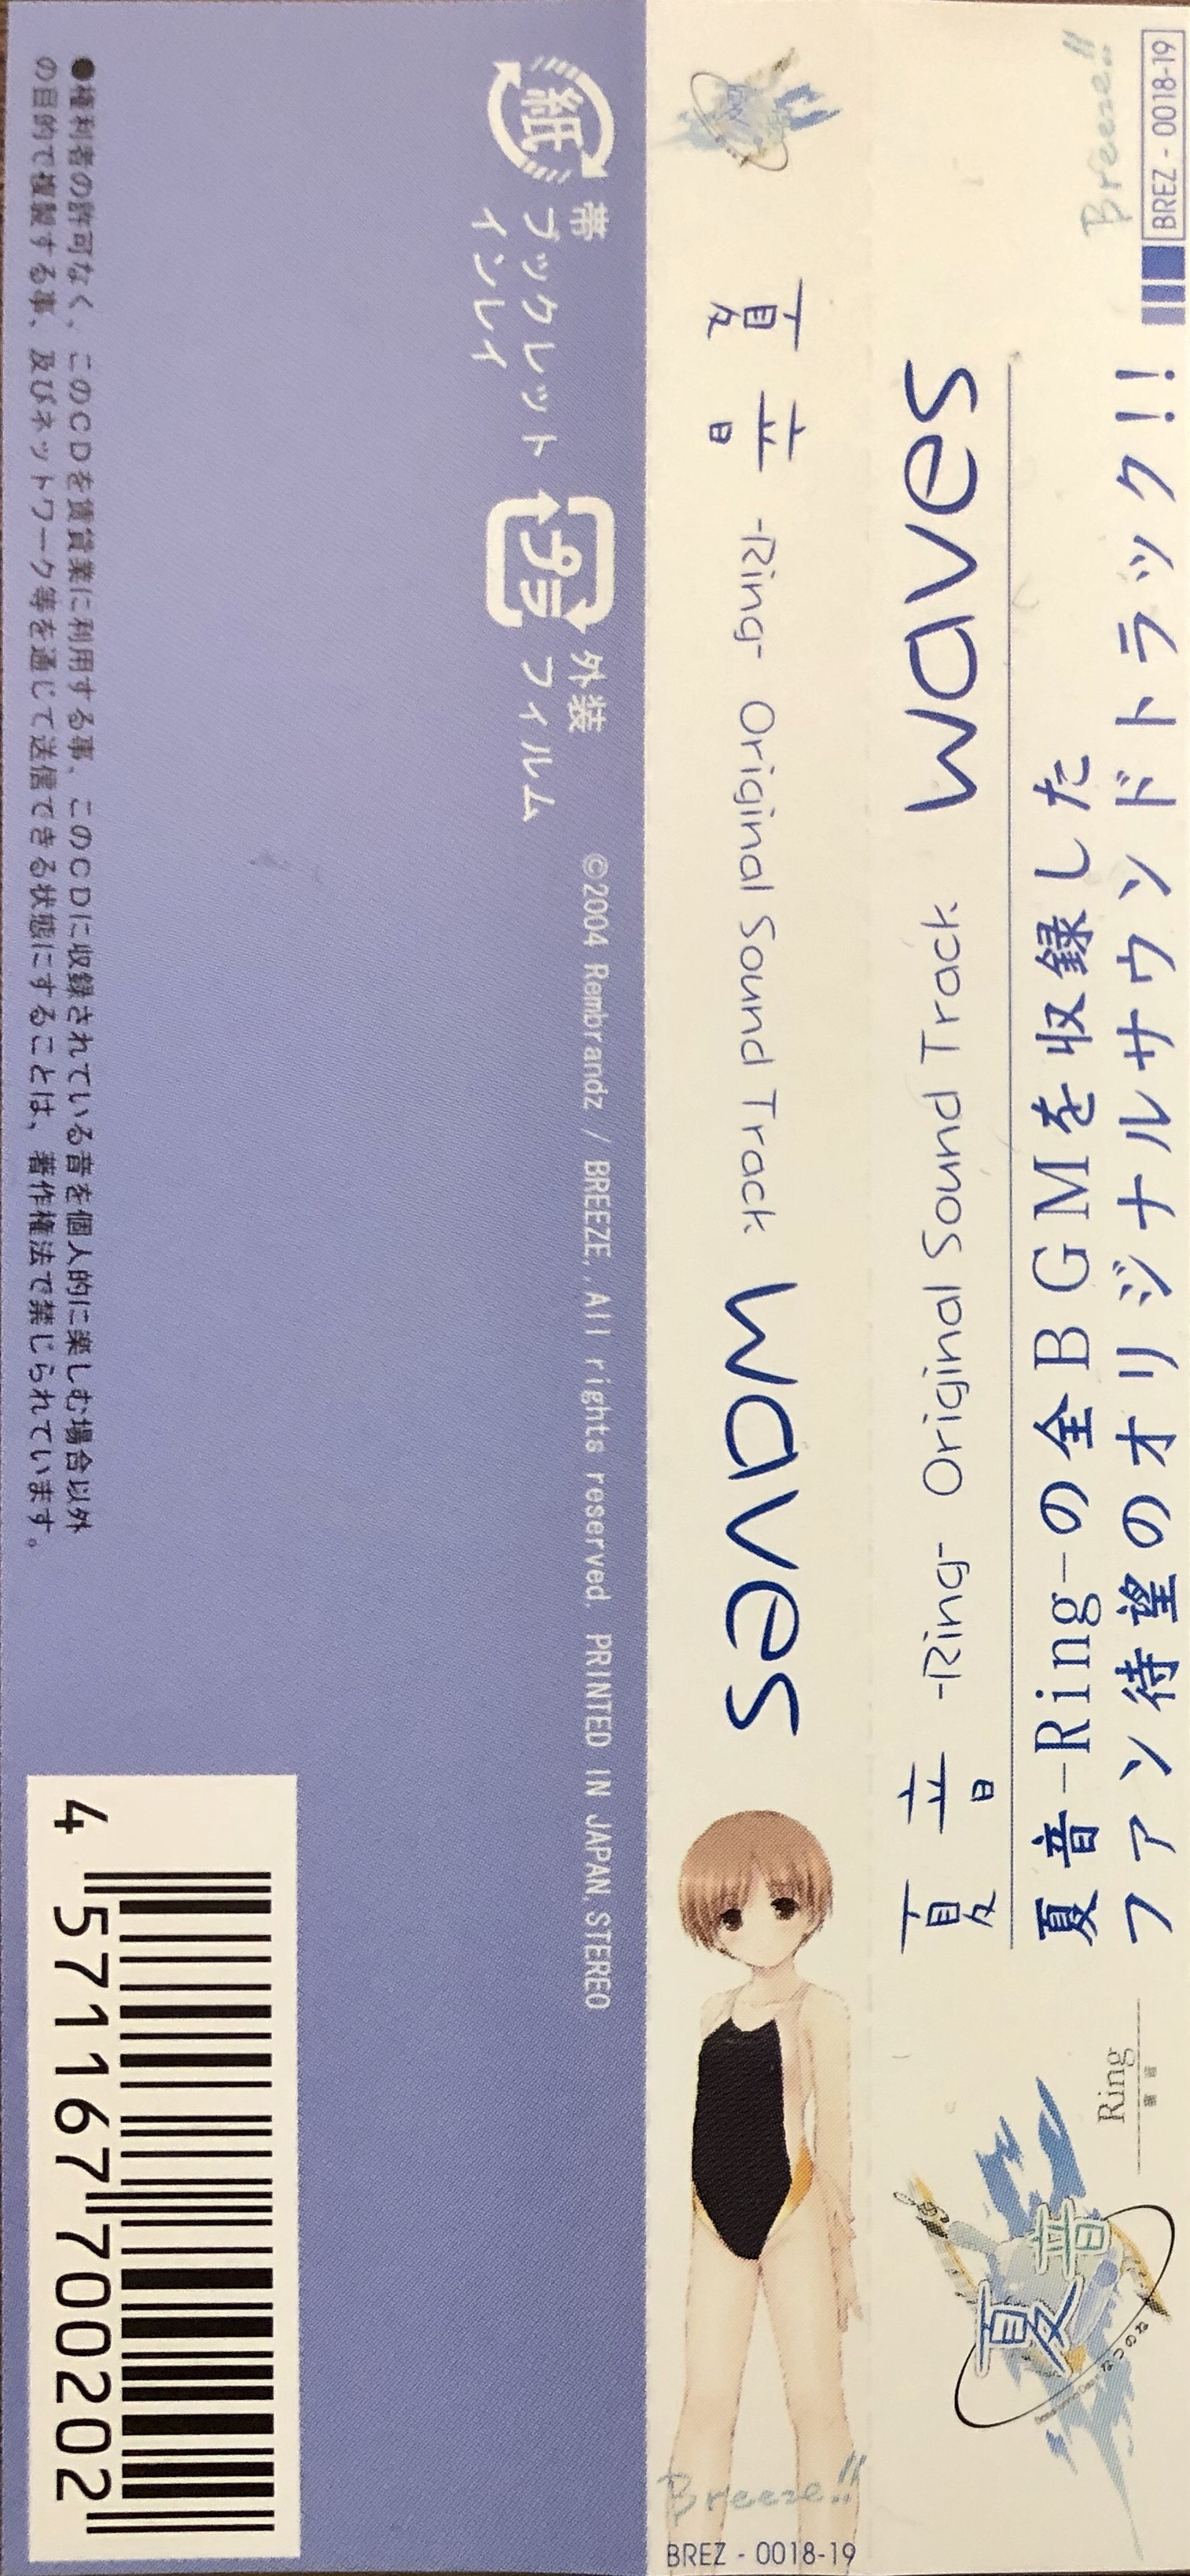 BREZ - 0018-19
Breeze!!
夏音-Ring-の全BGMを収録した
ファン待望のオリジナルサウンドトラック!!
夏音 -Ring- Original Sound Track waves
Ring
夏音
なつのね
夏音 -Ring- Original Sound Track waves
Breeze!!
BREZ - 0018-19
紙
帯
ブックレット
インレイ
プラ
外装
フィルム
©2004 Rembrandz / BREEZE,.All rights reserved. PRINTED IN JAPAN,STEREO
●権利者の許可なく、このCDを賃貸業に利用する事、このCDに収録されている音を個人的に楽しむ場合以外
の目的で複製する事、及びネットワーク等を通じて送信できる状態にすることは、著作権法で禁じられています。
4 571167 700202